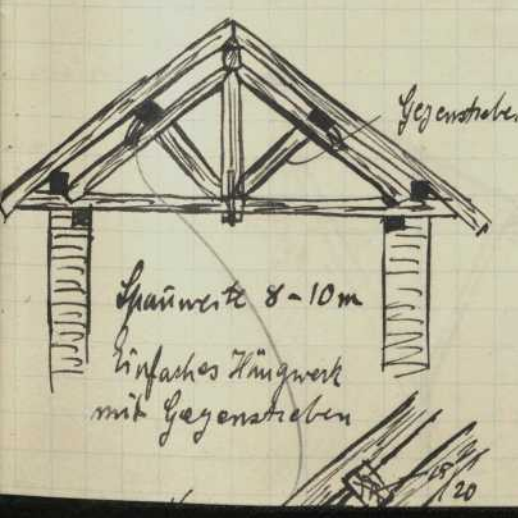 Gegenstreben
Spannweite 8-10 m
Einfaches Hängwerk
mit Gegenstreben
15/20